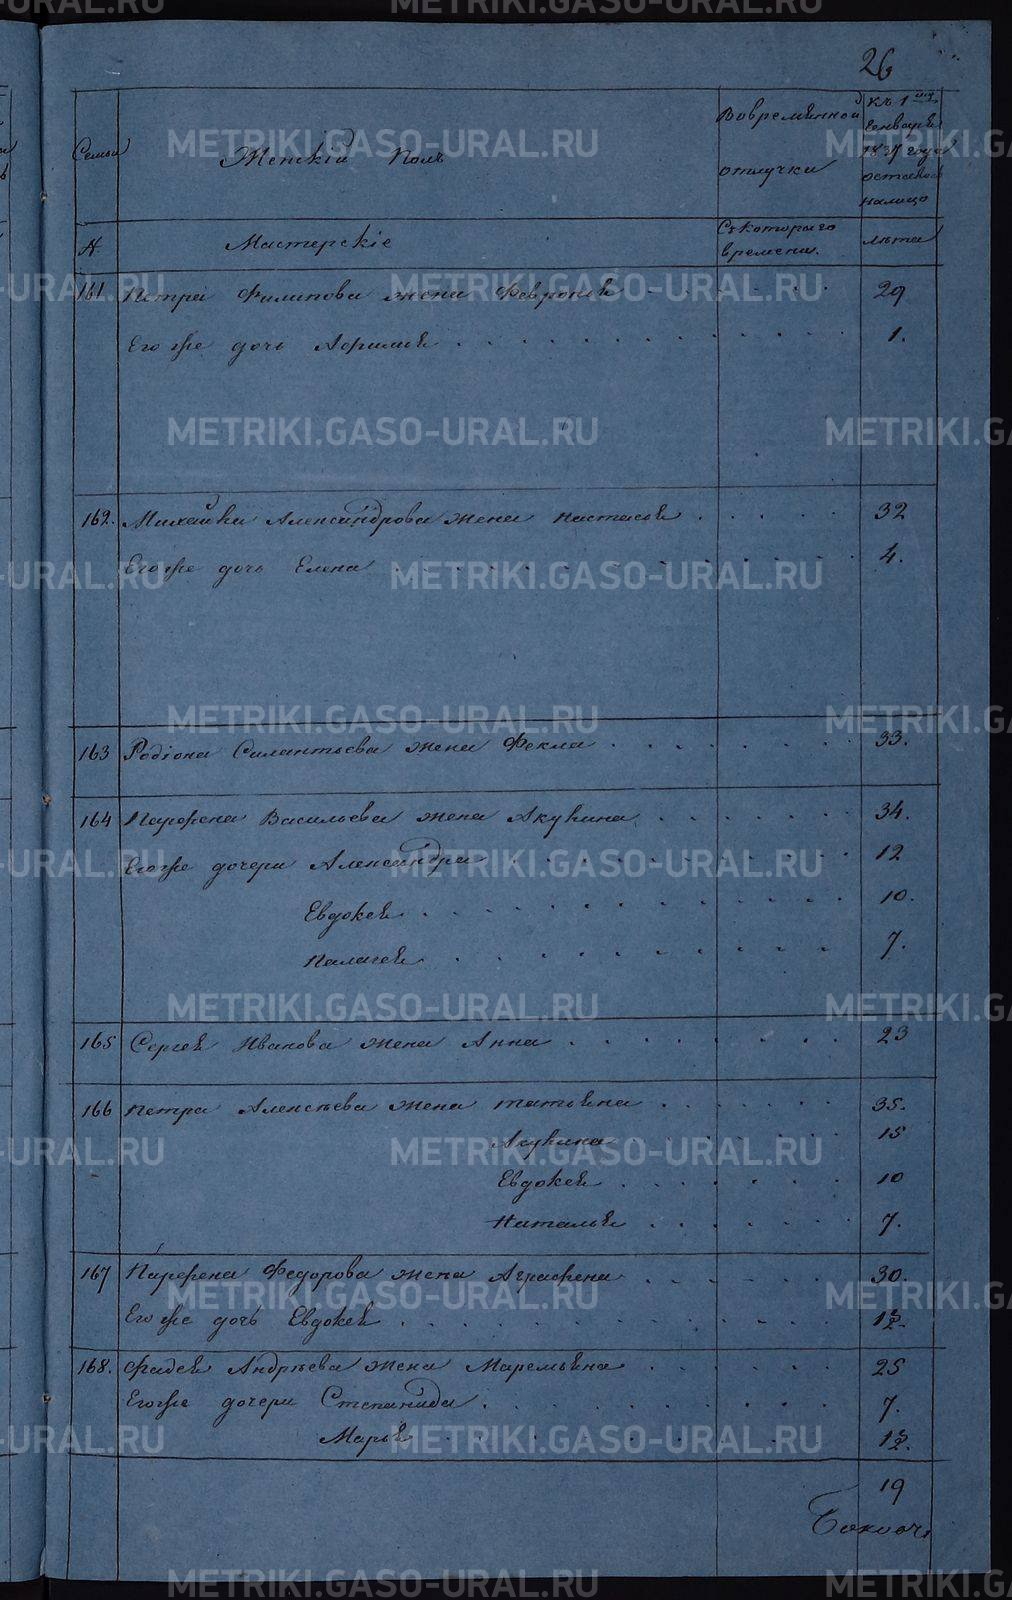 26
Семьи
Женскій Полъ
Вовременной отлучки
Къ 1му Генваря 1837 года осталось налицо
№
Мастерскіе
Съкотораго времени.
лѣта
161 Петра Филипова жена Февронья 29
Его же дочь Афимья 1.
162. Михайла Александрова жена настасья 32
Его же дочь Елена 4.
163 Родіона Силантьева жена Фекла 33.
164 Парфена Васильева жена Акулина 34.
Его же дочери Александра 12
Евдокея 10.
Палагея 7.
165 Сергея Иванова жена Анна 23
166 Петра Алексѣева жена татьяна 35.
Акулина 15
Евдокея 10
Наталья 7.
167 Парфена Федорова жена Аграфена 30.
Его же дочь Евдокея
168. Фадея Андрѣева жена Маремьяна 25
Его же дочери Степанида 7.
Марья
19
METRIKI.GASO-URAL.RU